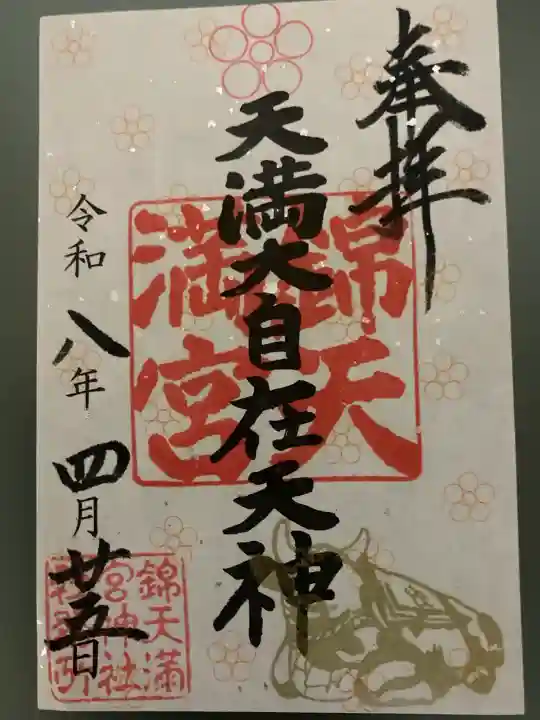 奉拝
天満大自在天神
錦天
満宮
令和八年四月廿五日
錦天満
宮神社